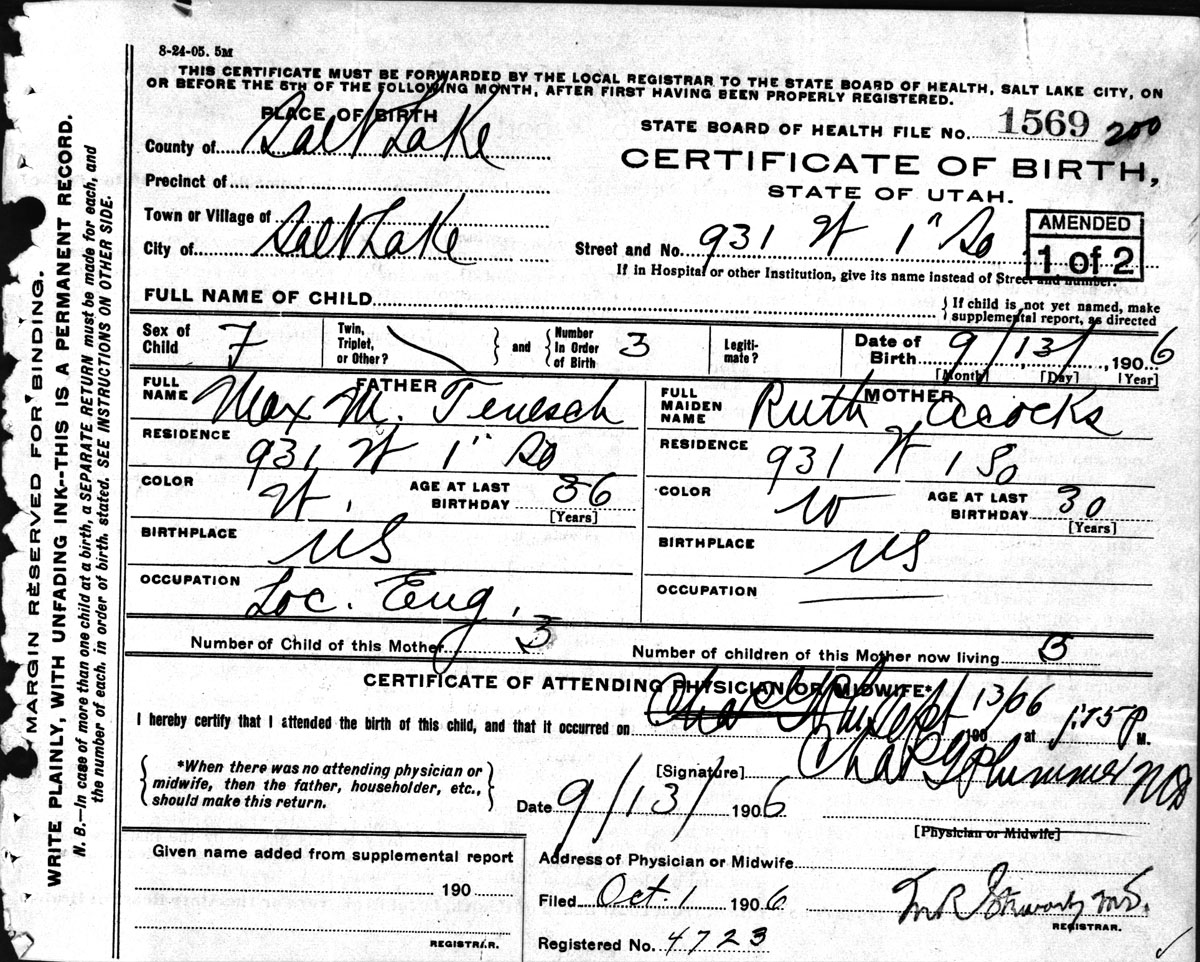 8-24-05. 5M
THIS CERTIFICATE MUST BE FORWARDED BY THE LOCAL REGISTRAR TO THE STATE BOARD OF HEALTH, SALT LAKE CITY, ON
OR BEFORE THE 5TH OF THE FOLLOWING MONTH, AFTER FIRST HAVING BEEN PROPERLY REGISTERED.
PLACE OF BIRTH
STATE BOARD OF HEALTH FILE No. 1569 200
County of Salt Lake
CERTIFICATE OF BIRTH,
Precinct of
STATE OF UTAH.
Town or Village of
AMENDED
1 of 2
City of Salt Lake
Street and No. 931 W 1" So
If in Hospital or other Institution, give its name instead of Street and number.
FULL NAME OF CHILD
{ If child is not yet named, make
supplemental report, as directed
Sex of Child F
Twin, Triplet, or Other?
} and { Number In Order of Birth 3
Legitimate?
Date of Birth 9/13/, 1906
[Month] [Day] [Year]
FATHER
FULL NAME Max M. Tenesch
MOTHER
FULL MAIDEN NAME Ruth Acocks
RESIDENCE 931 W 1" So
RESIDENCE 931 W 1 So
COLOR W.
AGE AT LAST BIRTHDAY 36
[Years]
COLOR W
AGE AT LAST BIRTHDAY 30
[Years]
BIRTHPLACE US
BIRTHPLACE US
OCCUPATION Loc. Eng.
OCCUPATION
Number of Child of this Mother 3
Number of children of this Mother now living 3
CERTIFICATE OF ATTENDING PHYSICIAN OR MIDWIFE*
I hereby certify that I attended the birth of this child, and that it occurred on Sept 13/06 190 at P M.
{ *When there was no attending physician or
midwife, then the father, householder, etc.,
should make this return. }
[Signature] Chas G Plummer MD
Date 9/13/ 1906
[Physician or Midwife]
Given name added from supplemental report
190
REGISTRAR.
Address of Physician or Midwife
Filed Oct. 1 1906
REGISTRAR.
Registered No. 4723
MARGIN RESERVED FOR BINDING.
WRITE PLAINLY, WITH UNFADING INK--THIS IS A PERMANENT RECORD.
N. B.—In case of more than one child at a birth, a SEPARATE RETURN must be made for each, and
the number of each, in order of birth, stated. SEE INSTRUCTIONS ON OTHER SIDE.